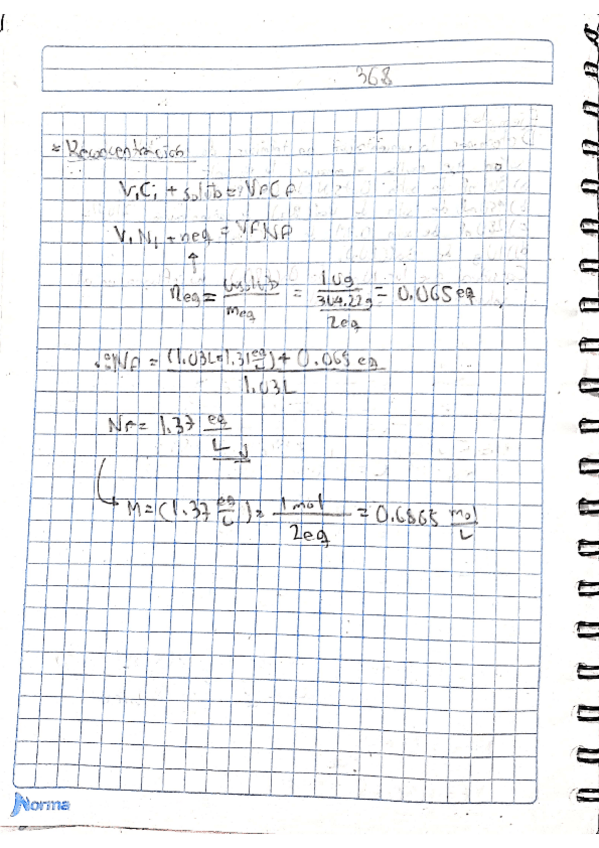 368
* Reconcentración
ViCi + sltb = VfCf
ViNi + neq = VFNf
↑
neq = wsltb / meq = 10g / (304.22g / 2eq) = 0.065 eq
∴ Nf = ((1.03L * 1.31 eq/L) + 0.065 eq) / 1.03L
Nf = 1.37 eq/L
↳ M = (1.37 eq/L) * 1 mol / 2eq = 0.6865 mol/L
Norma